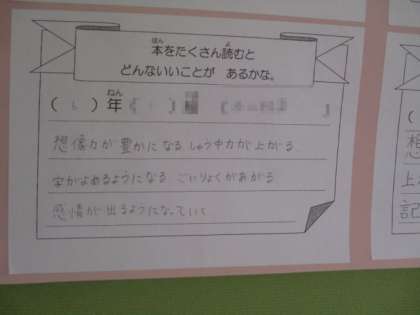 本をたくさん読むと
どんないいことが あるかな。
( ) 年
想像力が豊かになる しゅう中力が上がる
字がよめるようになる ごいりょくがあがる
感情が出るようになっていく
想
上
記